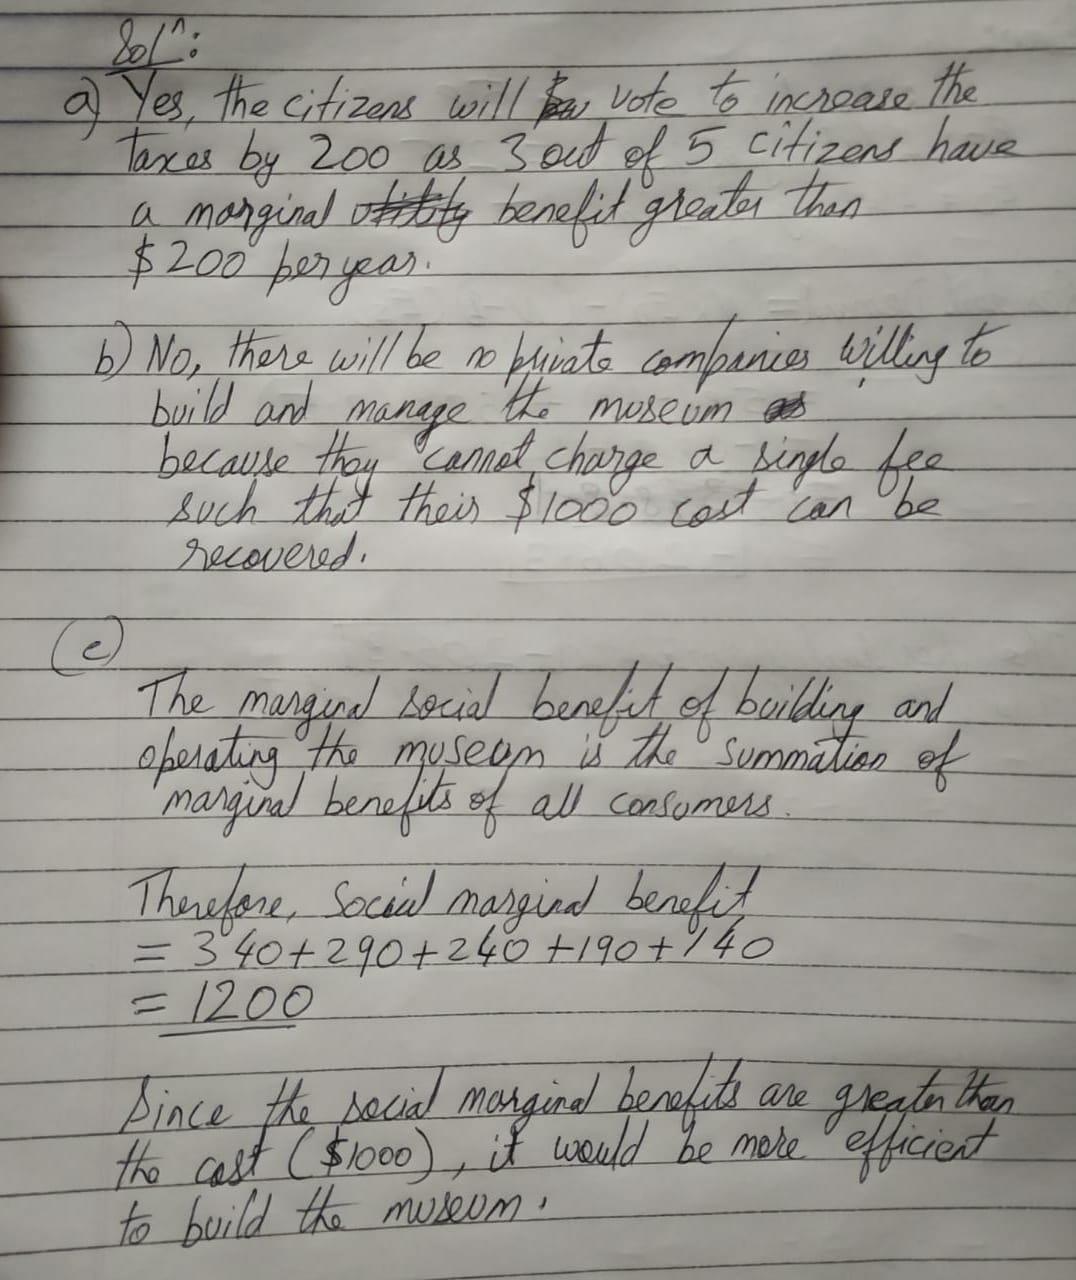 Solⁿ:
a) Yes, the citizens will vote to increase the
Taxes by 200 as 3 out of 5 citizens have
a marginal benefit greater than
$200 per year.
b) No, there will be no private companies willing to
build and manage the museum
because they cannot charge a single fee
such that their $1000 cost can be
recovered.
(c)
The marginal social benefit of building and
operating the museum is the summation of
marginal benefits of all consumers.
Therefore, Social marginal benefit
= 340+290+240+190+140
= 1200
Since the social marginal benefits are greater than
the cost ($1000), it would be more efficient
to build the museum.